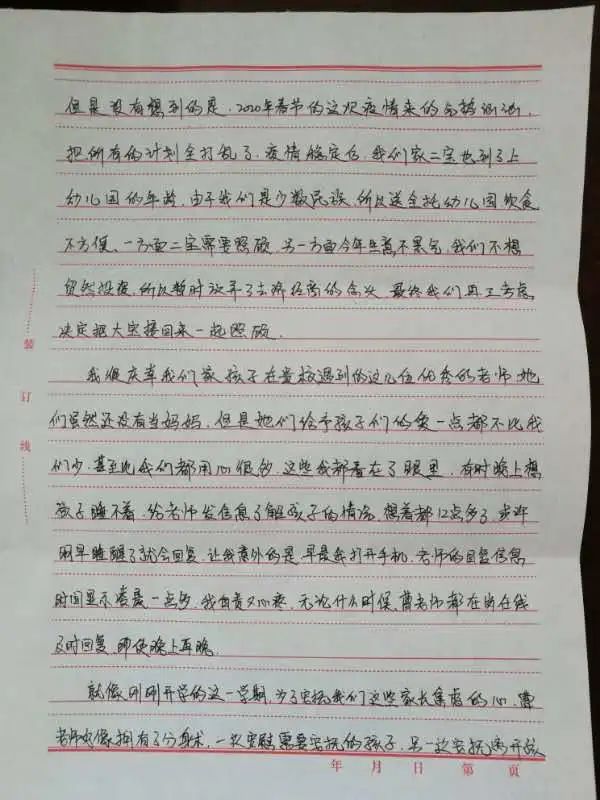 但是没有想到的是，2020年春节的这次疫情来的气势汹汹，
把所有的计划全打乱了，疫情稳定后，我们家二宝也到了上
幼儿园的年龄，由于我们是少数民族，所以送全托幼儿园饮食
不方便，一方面二宝需要照顾，另一方面今年生意不景气，我们不想
贸然投资，所以暂时放弃了去外经商的念头，最终我们再三考虑，
决定把大宝接回来一起照顾。
我很庆幸我们家孩子在贵校遇到的这几位优秀的老师，她
们虽然还没有当妈妈，但是她们给予孩子们的爱一点都不比我
们少，甚至比我们都用心很多，这些我都看在了眼里，有时晚上想
孩子睡不着，给老师发信息了解孩子的情况，想着都12点多了，老师
明早睡醒了就会回复，让我意外的是，早晨我打开手机，老师的回复信息
时间显示凌晨一点多，我自责又心疼，无论什么时候，曹老师都在岗在线
及时回复，即使晚上再晚。
就像刚刚开学的这一学期，为了安抚我们这些家长焦虑的心，曹
老师好像拥有了分身术，一次安慰需要安抚的孩子，另一次安抚离开孩
装
订
线
年 月 日 第 页